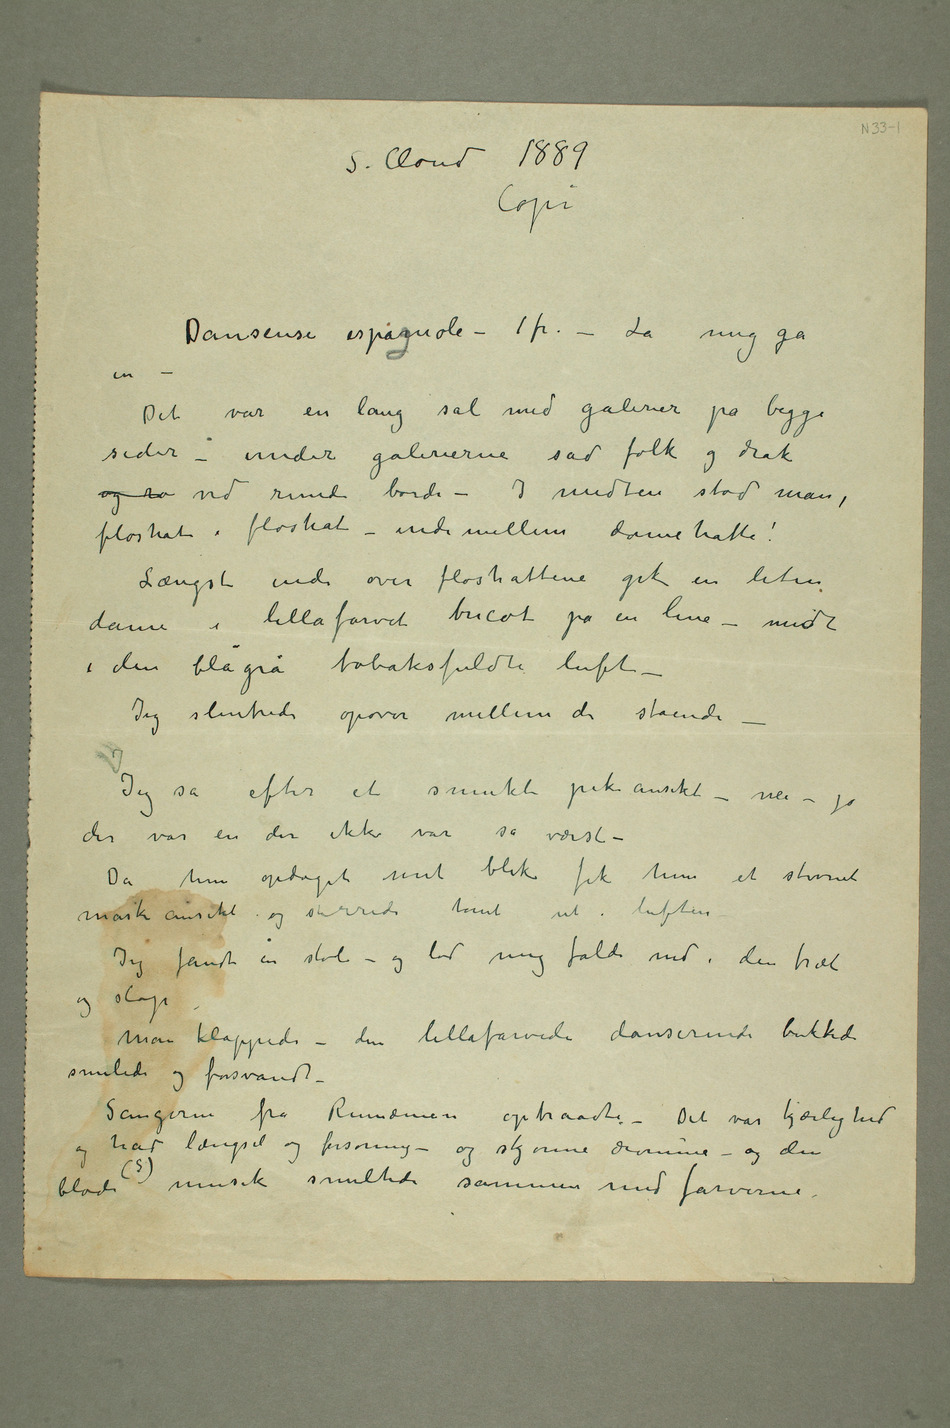 N 33-1
S. Cloud 1889
Copi
Danseuse espagnole – 1 fr. – La mig ga
in –
Det var en lang sal med galerier på begge
sider – under galerierne sad folk og drak
og ro ved runde borde – I midten stod man,
floshat i floshat – inde mellem damehatte!
Længst inde over floshattene gik en liten
dame i lillafarvet tricot på en line – midt
i den blågrå tobaksfuldte luft –
Jeg slentrede opover mellem de stående –
J
Jeg så efter et smukt pikeansikt – nei – jo
der var en der ikke var så værst –
Da hun opdaget mit blik fik hun et stivnet
maske ansikt og stirrede tomt ut i luften
Jeg fandt en stol – og lod mig falde ned i den træt
og slap
Man klappede – den lillafarvede danserinde bukkede
smilede og forsvandt –
Sangerne fra Rumænien optraadte. – Det var kjærlighed
og had længsel og forsoning – og skjønne drømme – og den
bløde (S) musik smeltede sammen med farverne.